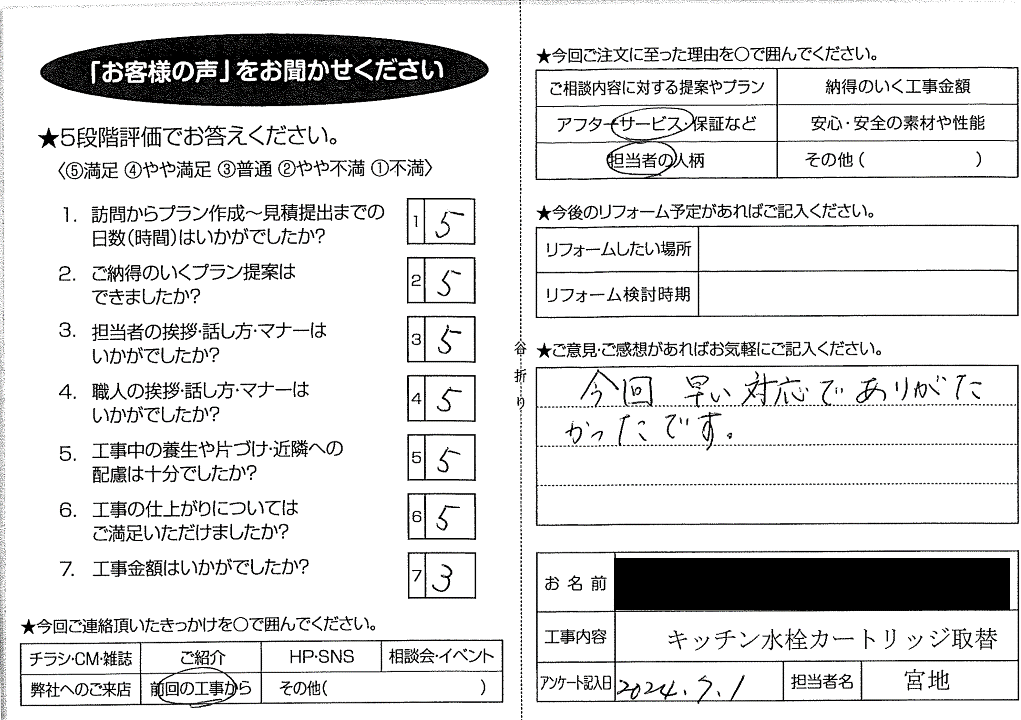 「お客様の声」をお聞かせください
★5段階評価でお答えください。
〈⑤満足 ④やや満足 ③普通 ②やや不満 ①不満〉
1. 訪問からプラン作成～見積提出までの
日数(時間)はいかがでしたか?
1 5
2. ご納得のいくプラン提案は
できましたか?
2 5
3. 担当者の挨拶・話し方・マナーは
いかがでしたか?
3 5
4. 職人の挨拶・話し方・マナーは
いかがでしたか?
4 5
5. 工事中の養生や片づけ・近隣への
配慮は十分でしたか?
5 5
6. 工事の仕上がりについては
ご満足いただけましたか?
6 5
7. 工事金額はいかがでしたか?
7 3
★今回ご連絡頂いたきっかけを○で囲んでください。
チラシ・CM・雑誌 ご紹介 HP・SNS 相談会・イベント
弊社へのご来店 前回の工事から その他( )
谷折り
★今回ご注文に至った理由を○で囲んでください。
ご相談内容に対する提案やプラン 納得のいく工事金額
アフターサービス・保証など 安心・安全の素材や性能
担当者の人柄 その他( )
★今後のリフォーム予定があればご記入ください。
リフォームしたい場所
リフォーム検討時期
★ご意見・ご感想があればお気軽にご記入ください。
今回 早い対応でありがた
かったです。
お名前
工事内容 キッチン水栓カートリッジ取替
アンケート記入日 2024.7.1 担当者名 宮地